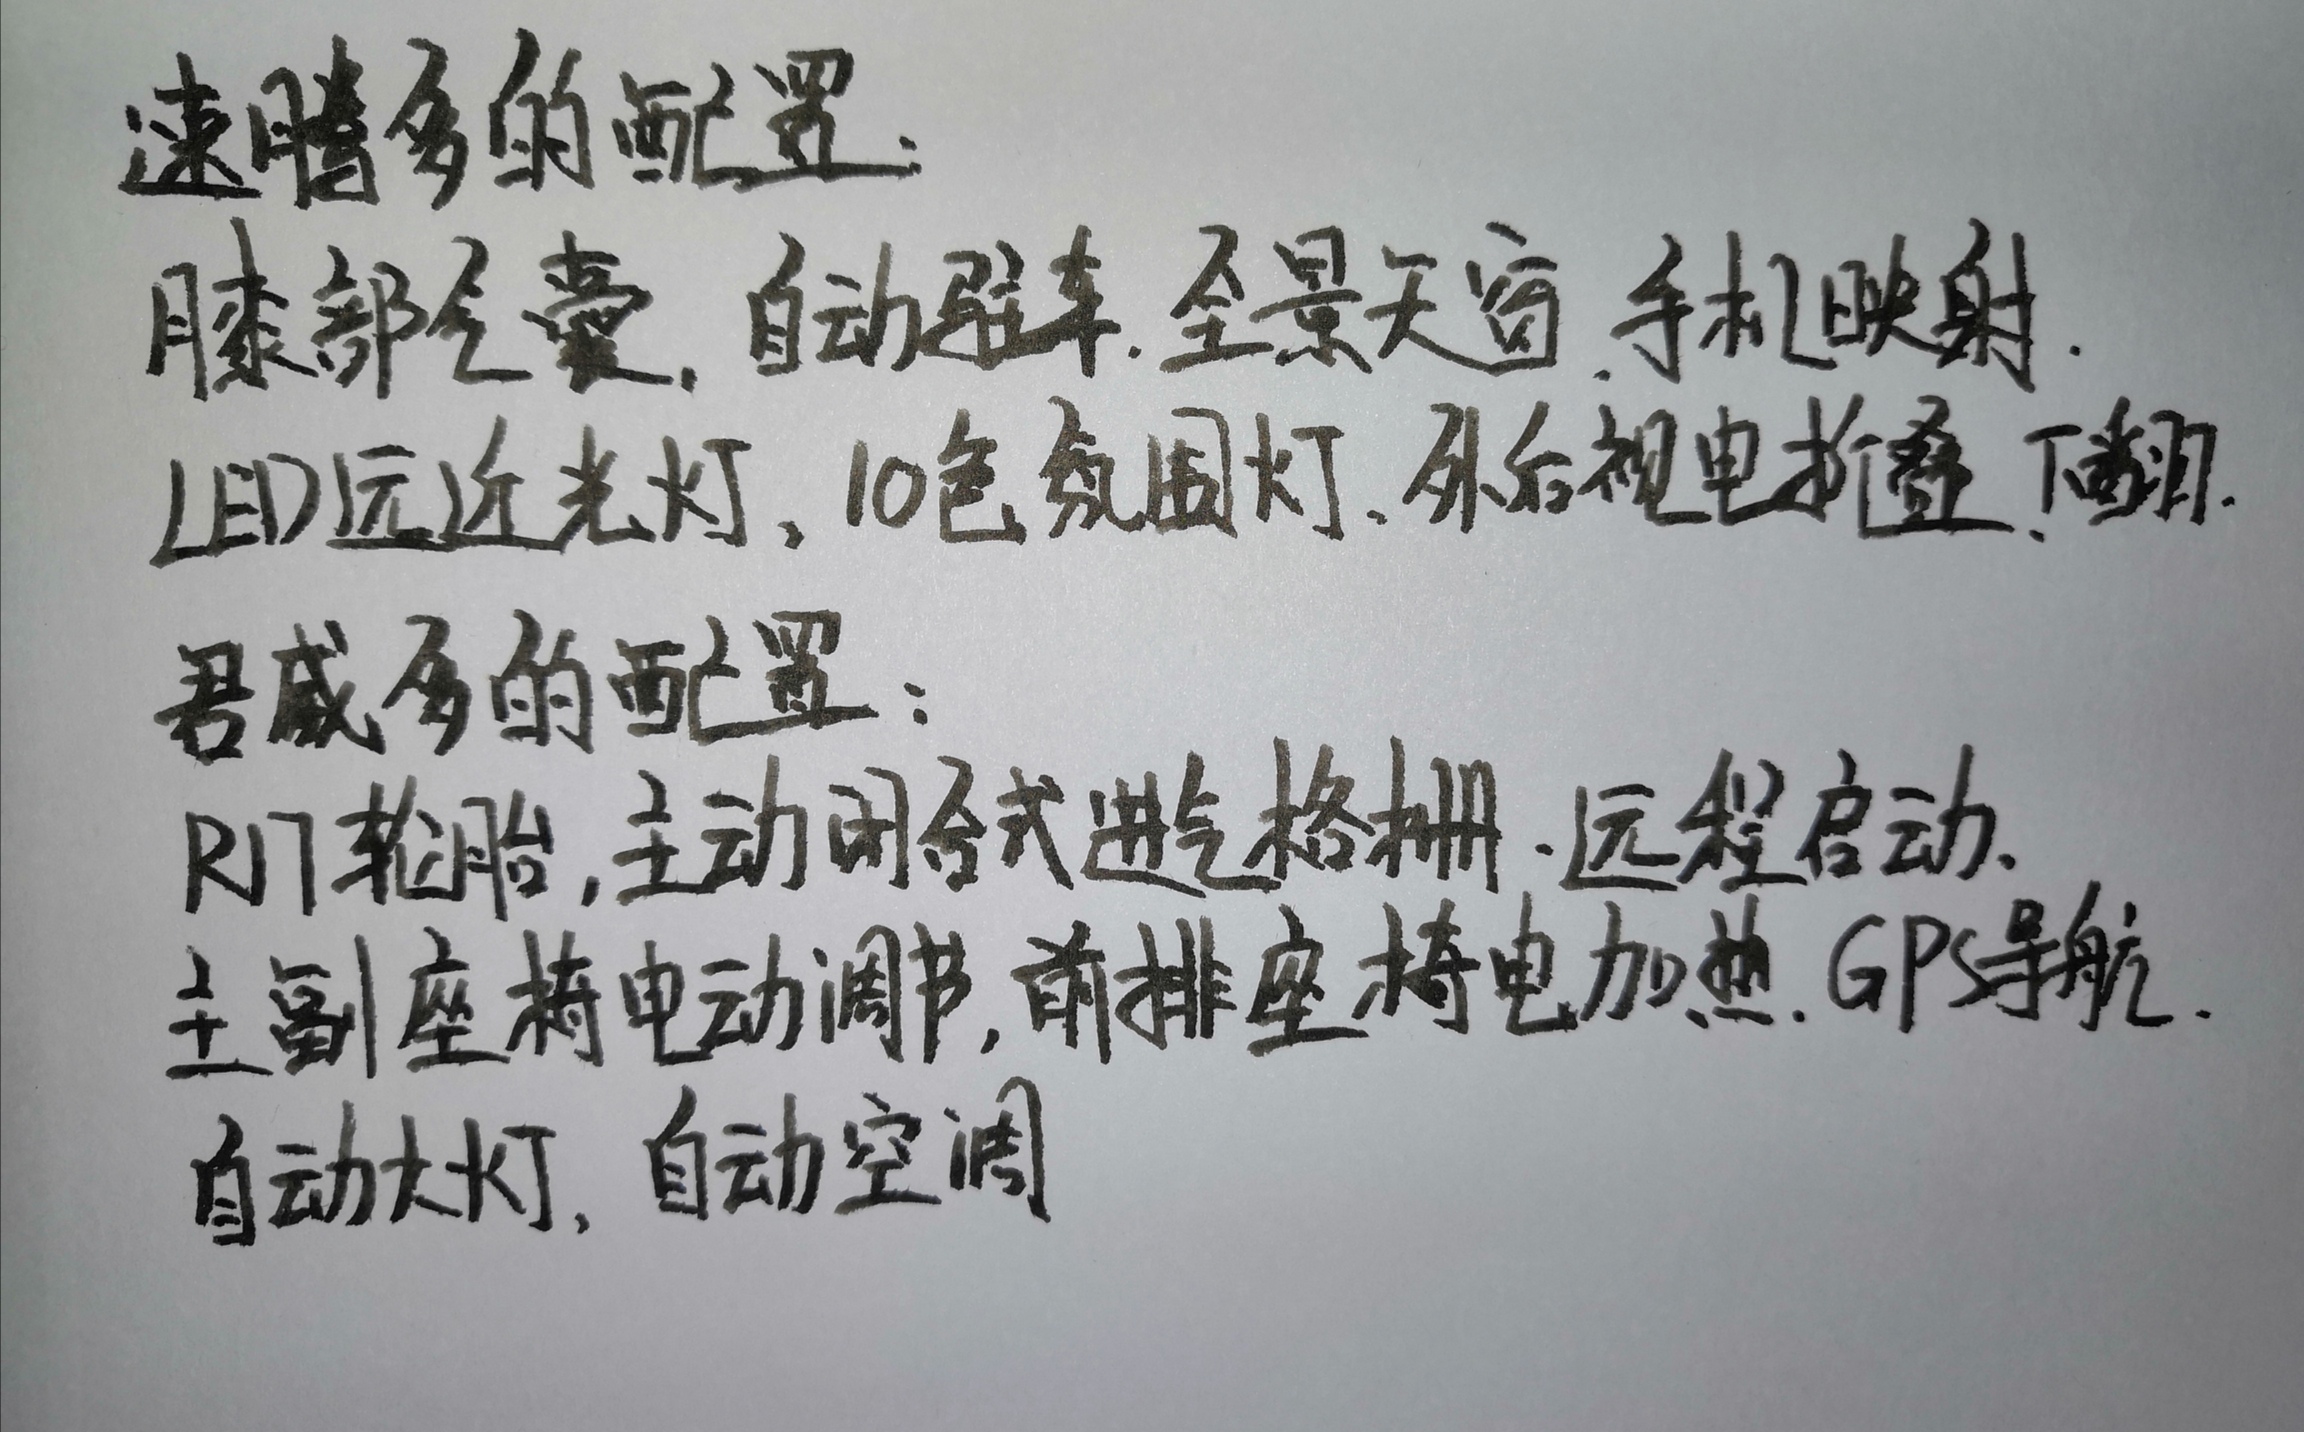 速腾多的配置:
膝部气囊,自动驻车.全景天窗.手机映射.
LED远近光灯、10色氛围灯、外后视电折叠、下翻.
君威多的配置:
R17轮胎,主动闭合式进气格栅.远程启动、
主副座椅电动调节,前排座椅电加热.GPS导航.
自动大灯、自动空调